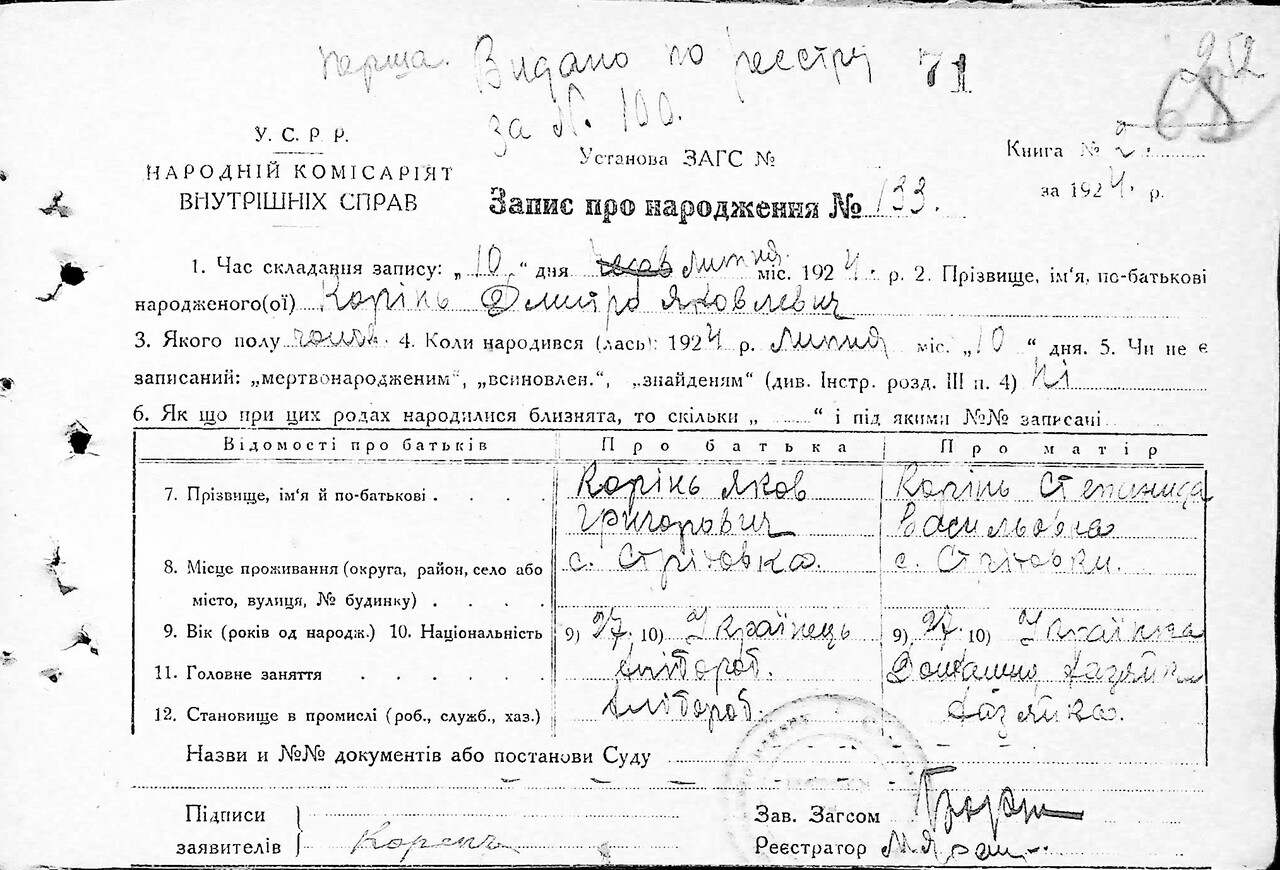 перша. Видано по реєстру 71
252
68
за N. 100.
У. С. Р. Р.
НАРОДНІЙ КОМІСАРІЯТ
ВНУТРІШНІХ СПРАВ
Установа ЗАГС №
Книга № 2.
за 1924. р.
Запис про народження № 133.
1. Час складання запису: „ 10 " дня липня міс. 1924. р. 2. Прізвище, ім'я, по-батькові
народженого(ої) Корінь Дмитро Яковлевич
3. Якого полу чолов. 4. Коли народився (лась): 1924 р. липня міс. „10 " дня. 5. Чи не є
записаний: „мертвонародженим", „всиновлен.", „знайденям" (див. Інстр. розд. III п. 4) ні
6. Як що при цих родах народилися близнята, то скільки „ ........ " і під якими №№ записані
Відомості про батьків Про батька Про матір
7. Прізвище, ім'я й по-батькові . . . . Корінь Яков Корінь Степанида
Григорович Васильовна
8. Місце проживання (округа, район, село або с. Стрітовка. с. Стрітовки.
місто, вулиця, № будинку) . . . .
9. Вік (років од народж.) 10. Національність 9) 27. 10) Українець 9) 27. 10) Українка
11. Головне заняття . . . . . . хлібороб. Домашня хазяйка
12. Становище в промислі (роб., служб., хаз.) хлібороб. хазяйка.
Назви и №№ документів або постанови Суду
Підписи
заявителів Корень
Зав. Загсом
Реєстратор